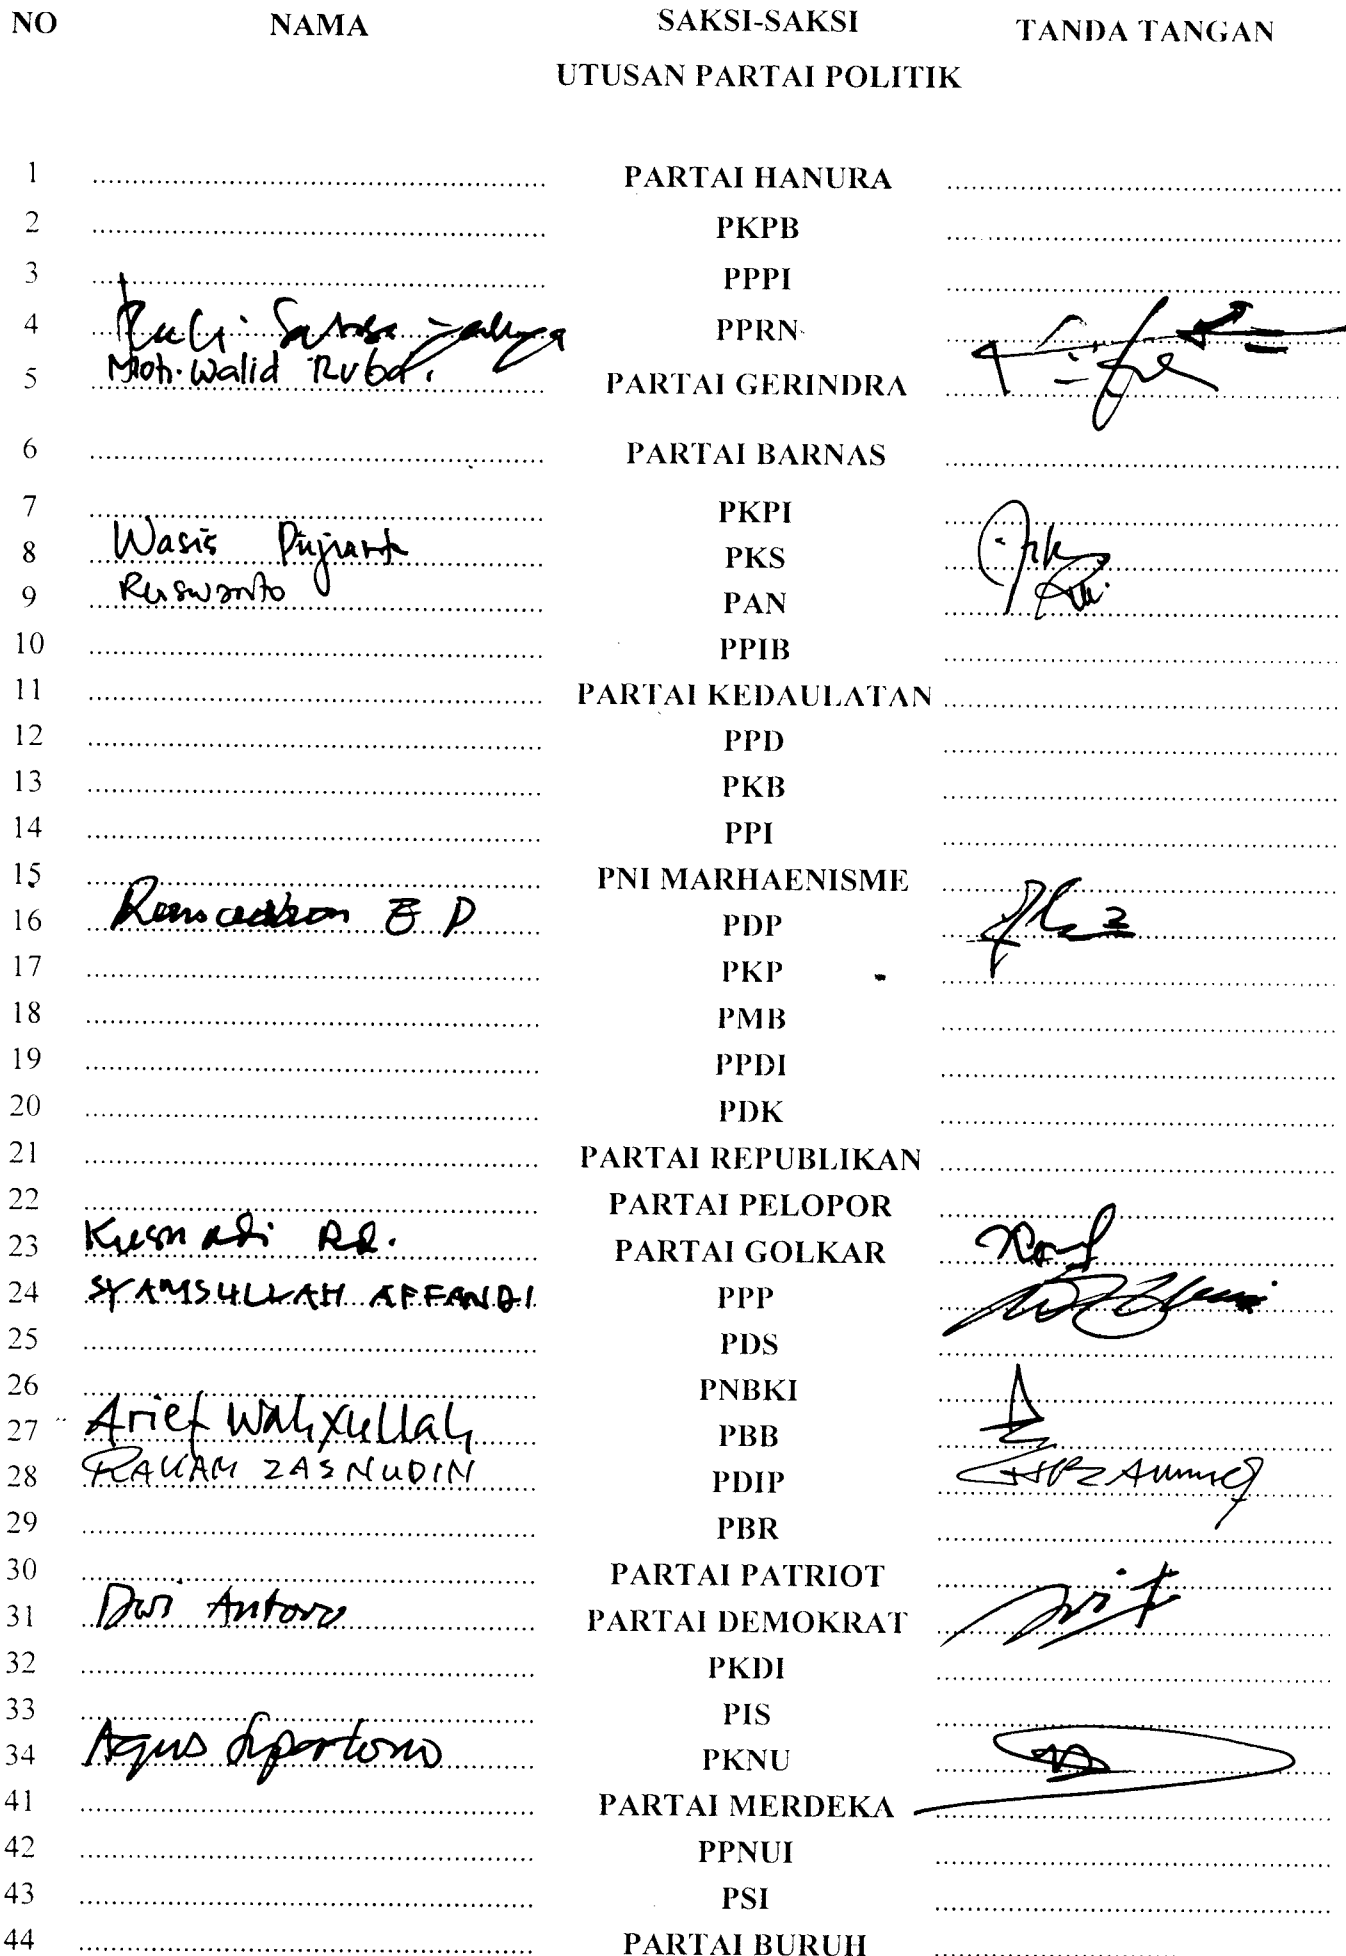 NO NAMA SAKSI-SAKSI TANDA TANGAN
UTUSAN PARTAI POLITIK
1 PARTAI HANURA
2 PKPB
3 PPPI
4 PPRN
5 Moh. Walid PARTAI GERINDRA
6 PARTAI BARNAS
7 PKPI
8 Wasis PKS
9 Ruswanto PAN
10 PPIB
11 PARTAI KEDAULATAN
12 PPD
13 PKB
14 PPI
15 PNI MARHAENISME
16 PDP
17 PKP
18 PMB
19 PPDI
20 PDK
21 PARTAI REPUBLIKAN
22 PARTAI PELOPOR
23 Kusnadi Rd. PARTAI GOLKAR
24 SYAMSULLAH AFFANDI PPP
25 PDS
26 PNBKI
27 Arief PBB
28 PDIP
29 PBR
30 PARTAI PATRIOT
31 Dwi Antoro PARTAI DEMOKRAT
32 PKDI
33 PIS
34 Agus PKNU
41 PARTAI MERDEKA
42 PPNUI
43 PSI
44 PARTAI BURUH